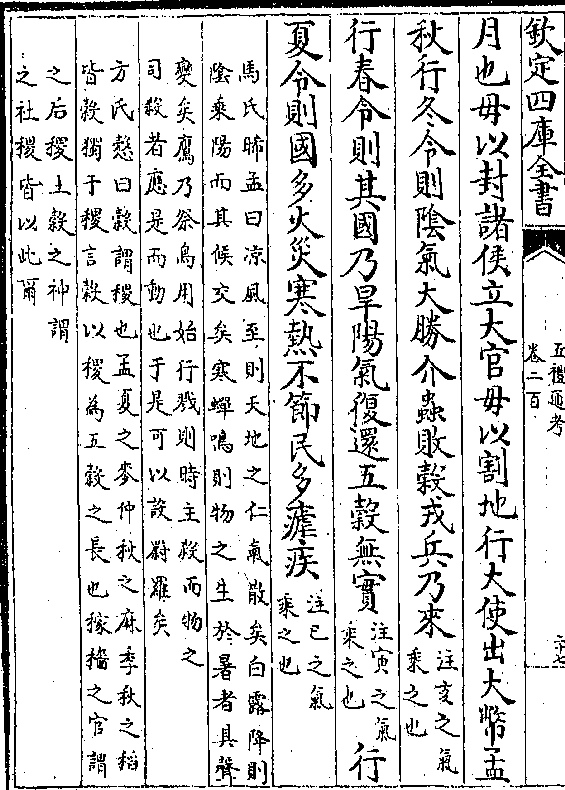 欽定四庫全書
五禮通考
卷二百
二十七
月也毋以封諸侯立大官毋以割地行大使出大幣孟
秋行冬令則陰氣大勝介蟲敗穀戎兵乃來
注亥之氣
乘之也
行春令則其國乃旱陽氣復還五穀無實
注寅之氣
乘之也
行
夏令則國多火災寒熱不節民多瘧疾
注巳之氣
乘之也
馬氏晞孟曰凉風至則天地之仁氣散矣白露降則
陰乘陽而其候交矣寒蟬鳴則物之生於暑者其聲
變矣鷹乃祭鳥用始行戮則時主殺而物之
司殺者應是而動也于是可以設罻羅矣
方氏慤曰穀謂稷也孟夏之麥仲秋之麻季秋之稻
皆穀獨于稷言穀以稷為五穀之長也稼穡之官謂
之后稷土穀之神謂
之社稷皆以此爾